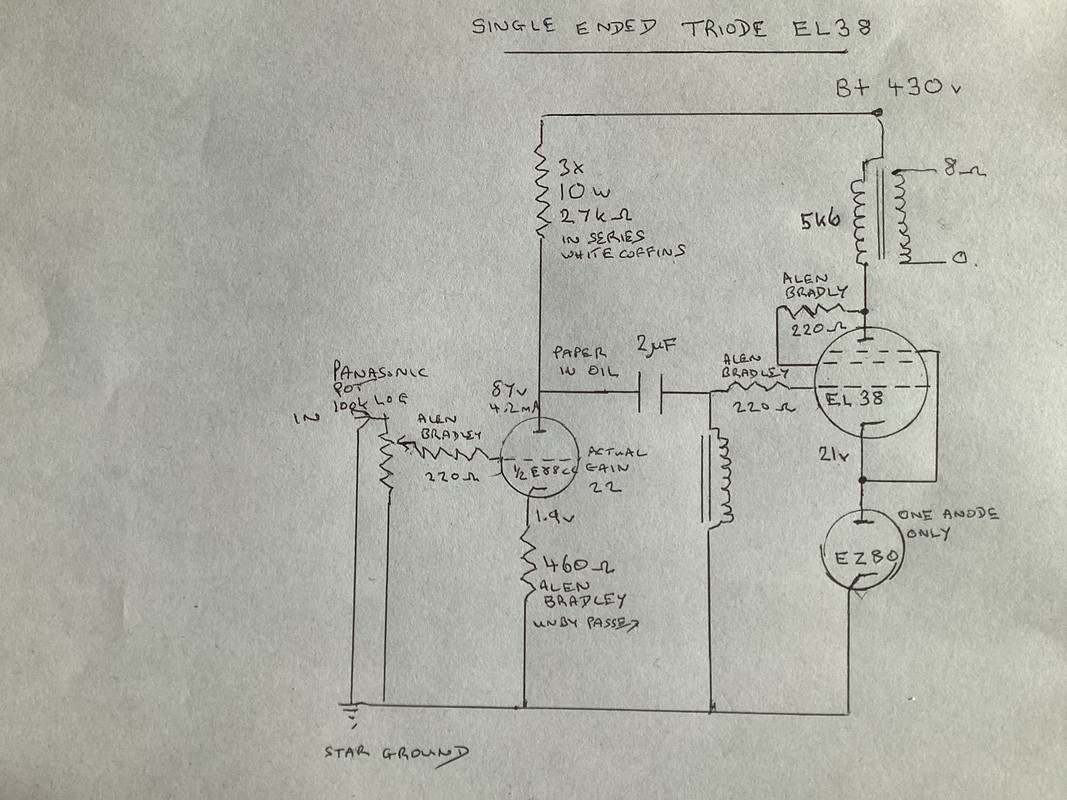 SINGLE ENDED TRIODE EL38
B+ 430v
3x
10w
27kΩ
IN SERIES
WHITE COFFINS
5k6
8Ω
0.
ALEN
BRADLY
220Ω
PAPER
IN OIL
2µF
ALEN
BRADLEY
220Ω
EL 38
PANASONIC
POT
100k LOG
IN
87v
4.2mA
ALEN
BRADLEY
220Ω
1/2 E88CC
ACTUAL
GAIN
22
21v
1.9v
ONE ANODE
ONLY
EZ80
460Ω
ALEN
BRADLEY
UNBYPASSED
STAR GROUND